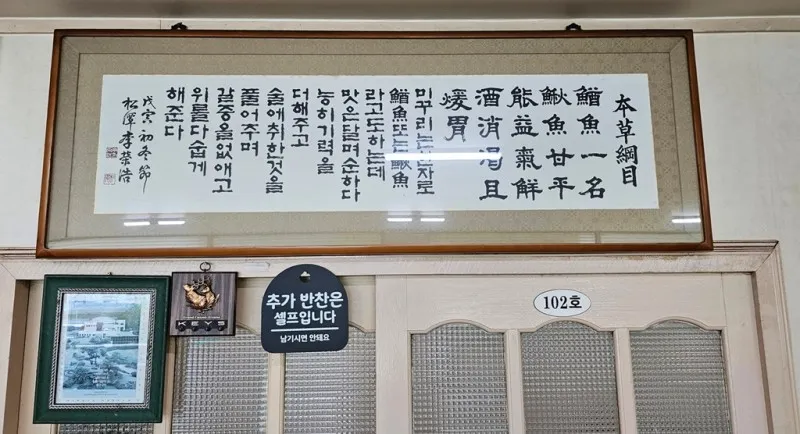 本草綱目
鰌魚一名
鰍魚甘平
能益氣解
酒消渴且
煖胃
미꾸리는한자로
鰌魚또는鰍魚
라고도하는데
맛은달며순하다
능히기력을
더해주고
술에취한것을
풀어주며
갈증을없애고
위를다습게
해준다
戊寅初冬節
李榮浩
KEYS
추가 반찬은
셀프입니다
남기시면 안돼요
102호